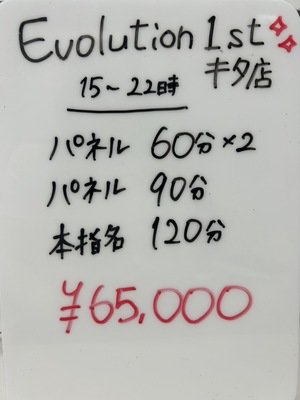 Evolution 1st
キタ店
15～22時
パネル 60分×2
パネル 90分
本指名 120分
¥65,000